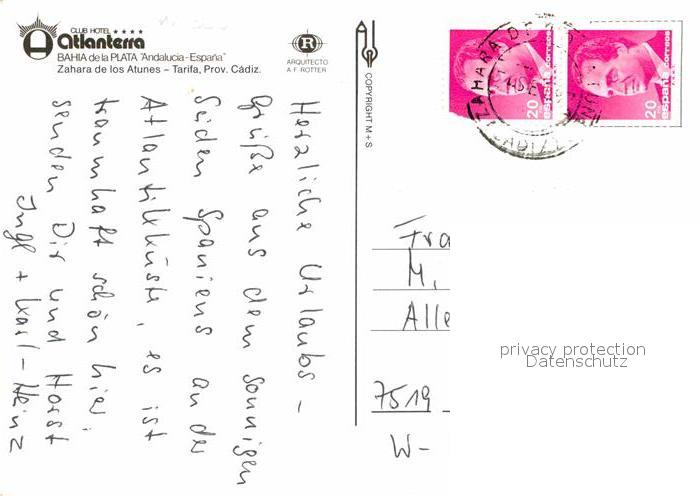 CLUB HOTEL ★★★★
atlanterra
BAHIA de la PLATA "Andalucia - España"
Zahara de los Atunes – Tarifa, Prov. Cádiz.
R
ARQUITECTO
A. F. ROTTER
COPYRIGHT M + S
Herzliche Urlaubs-
grüße aus dem sonnigen
Süden Spaniens an der
Atlantikküste, es ist
traumhaft schön hier.
senden Dir und Horst
Inge + Karl-Heinz
20 españa correos
20 españa correos
ZAHARA DE
Fra
M.
Alle
7519
W-
privacy protection
Datenschutz